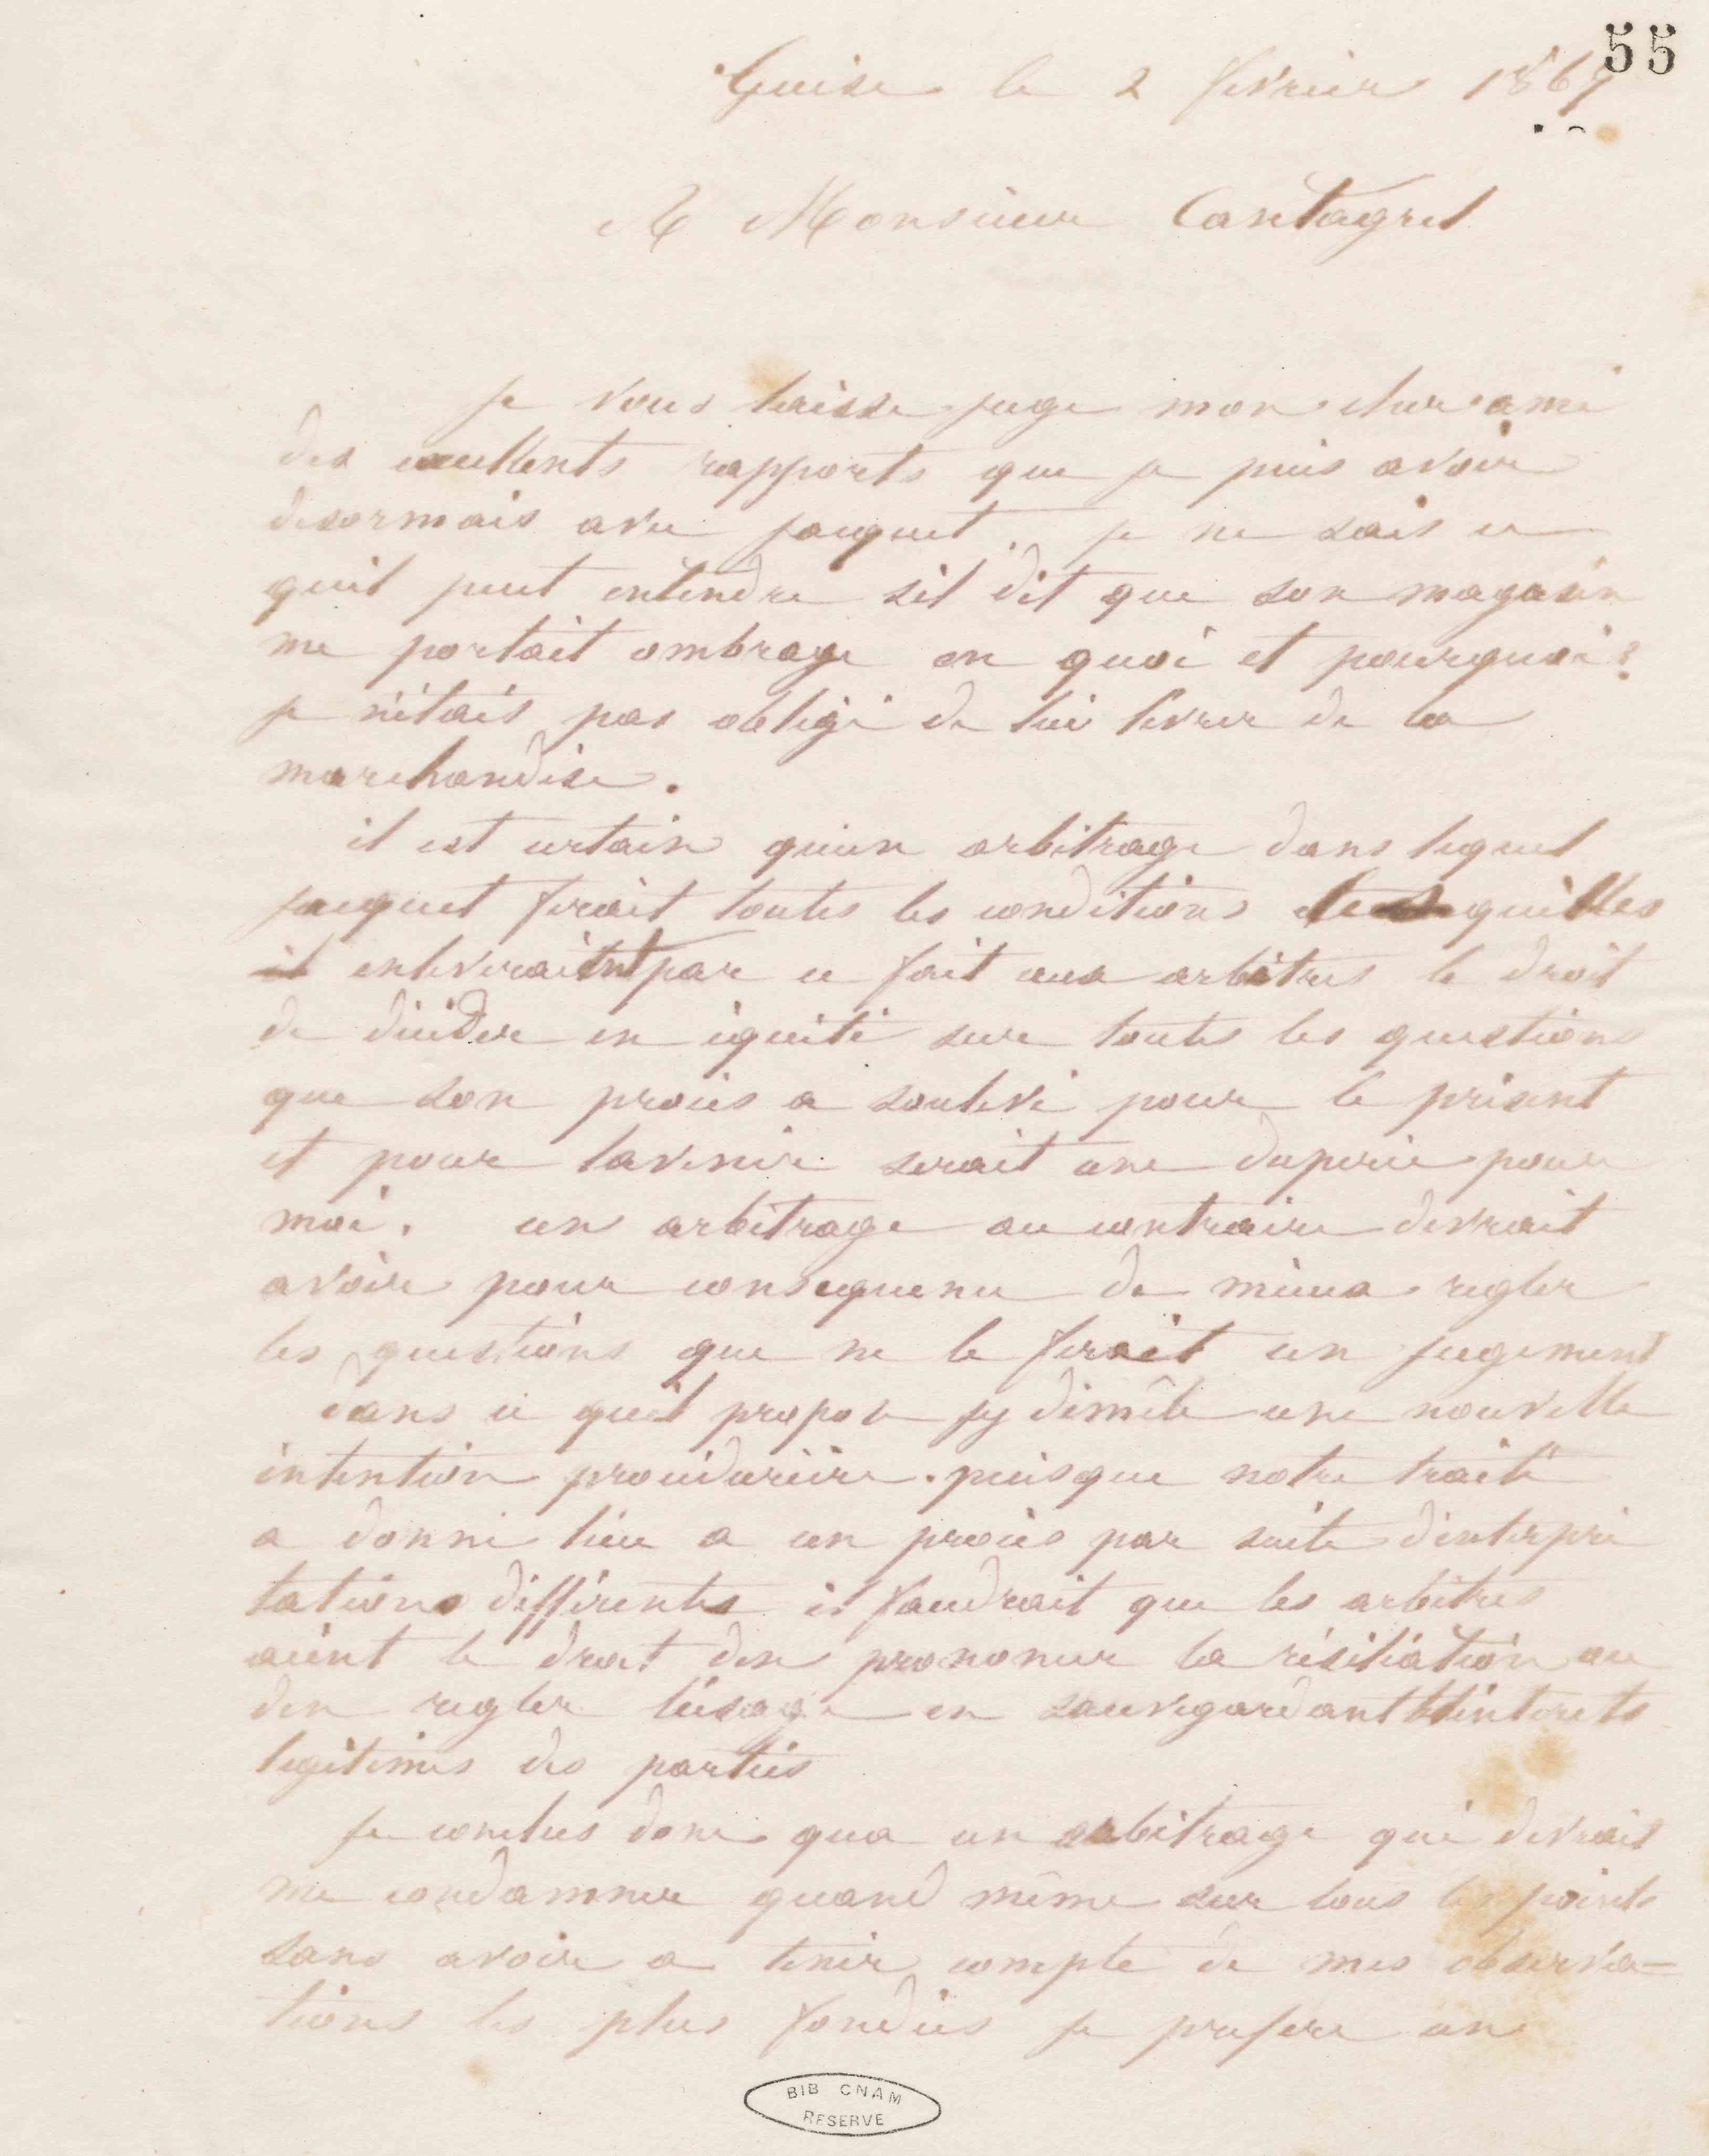 55
Guise le 2 février 1867
A Monsieur Cantagrel
je vous laisse juge mon cher ami
des excellents rapports que je puis avoir
desormais avec jacquet. je ne sais ce
quil peut entendre sil dit que son magasin
me portait ombrage en quoi et pourquoi?
je n'étais pas obligé de lui livrer de la
marchandise.
il est certain quun arbitrage dans lequel
jacquet ferait toutes les conditions quelles
enleveraient par ce fait aux arbitres le droit
de décider en équité sur toutes les questions
que son procès a soulevé pour le présent
et pour lavenir serait une duperie pour
moi. un arbitrage au contraire devrait
avoir pour consequence de mieux regler
les questions que ne le ferait un jugement
dans ce quil propose jy démêle une nouvelle
intention procédurière. puisque notre traité
a donné lieu a un procès par suite dinterpré
tations différentes il faudrait que les arbitres
aient le droit den prononcer la résiliation ou
den regler lusage en sauvegardant les interets
legitimes des parties
je conclus donc qua un arbitrage qui devrait
me condamner quand même sur tous les points
sans avoir a tenir compte de mes observa=
tions les plus fondées je prefere un
BIB CNAM
RESERVE